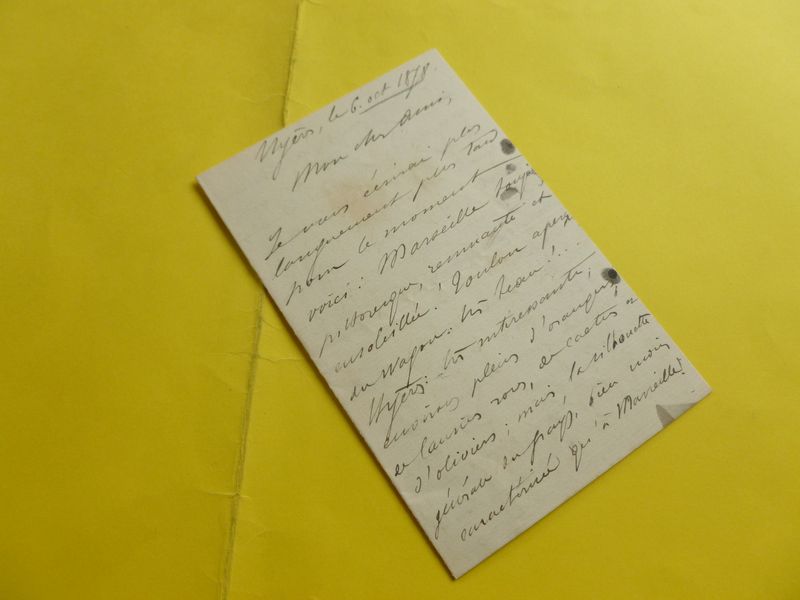 Hyères, le 6. oct 1878.
Mon cher Ami,
Je vous écrirai plus
longuement plus tard
pour le moment
voici: Marseille toujours
pittoresque, remuante et
ensoleillée! Toulon aperçu
du wagon. très beau!...
Hyères: très intéressante,
environs pleins d'orangers,
de lauriers roses, de cactus &
d'oliviers; mais, la silhouette
générale du pays, bien moins
caractérisée qu'à Marseille!